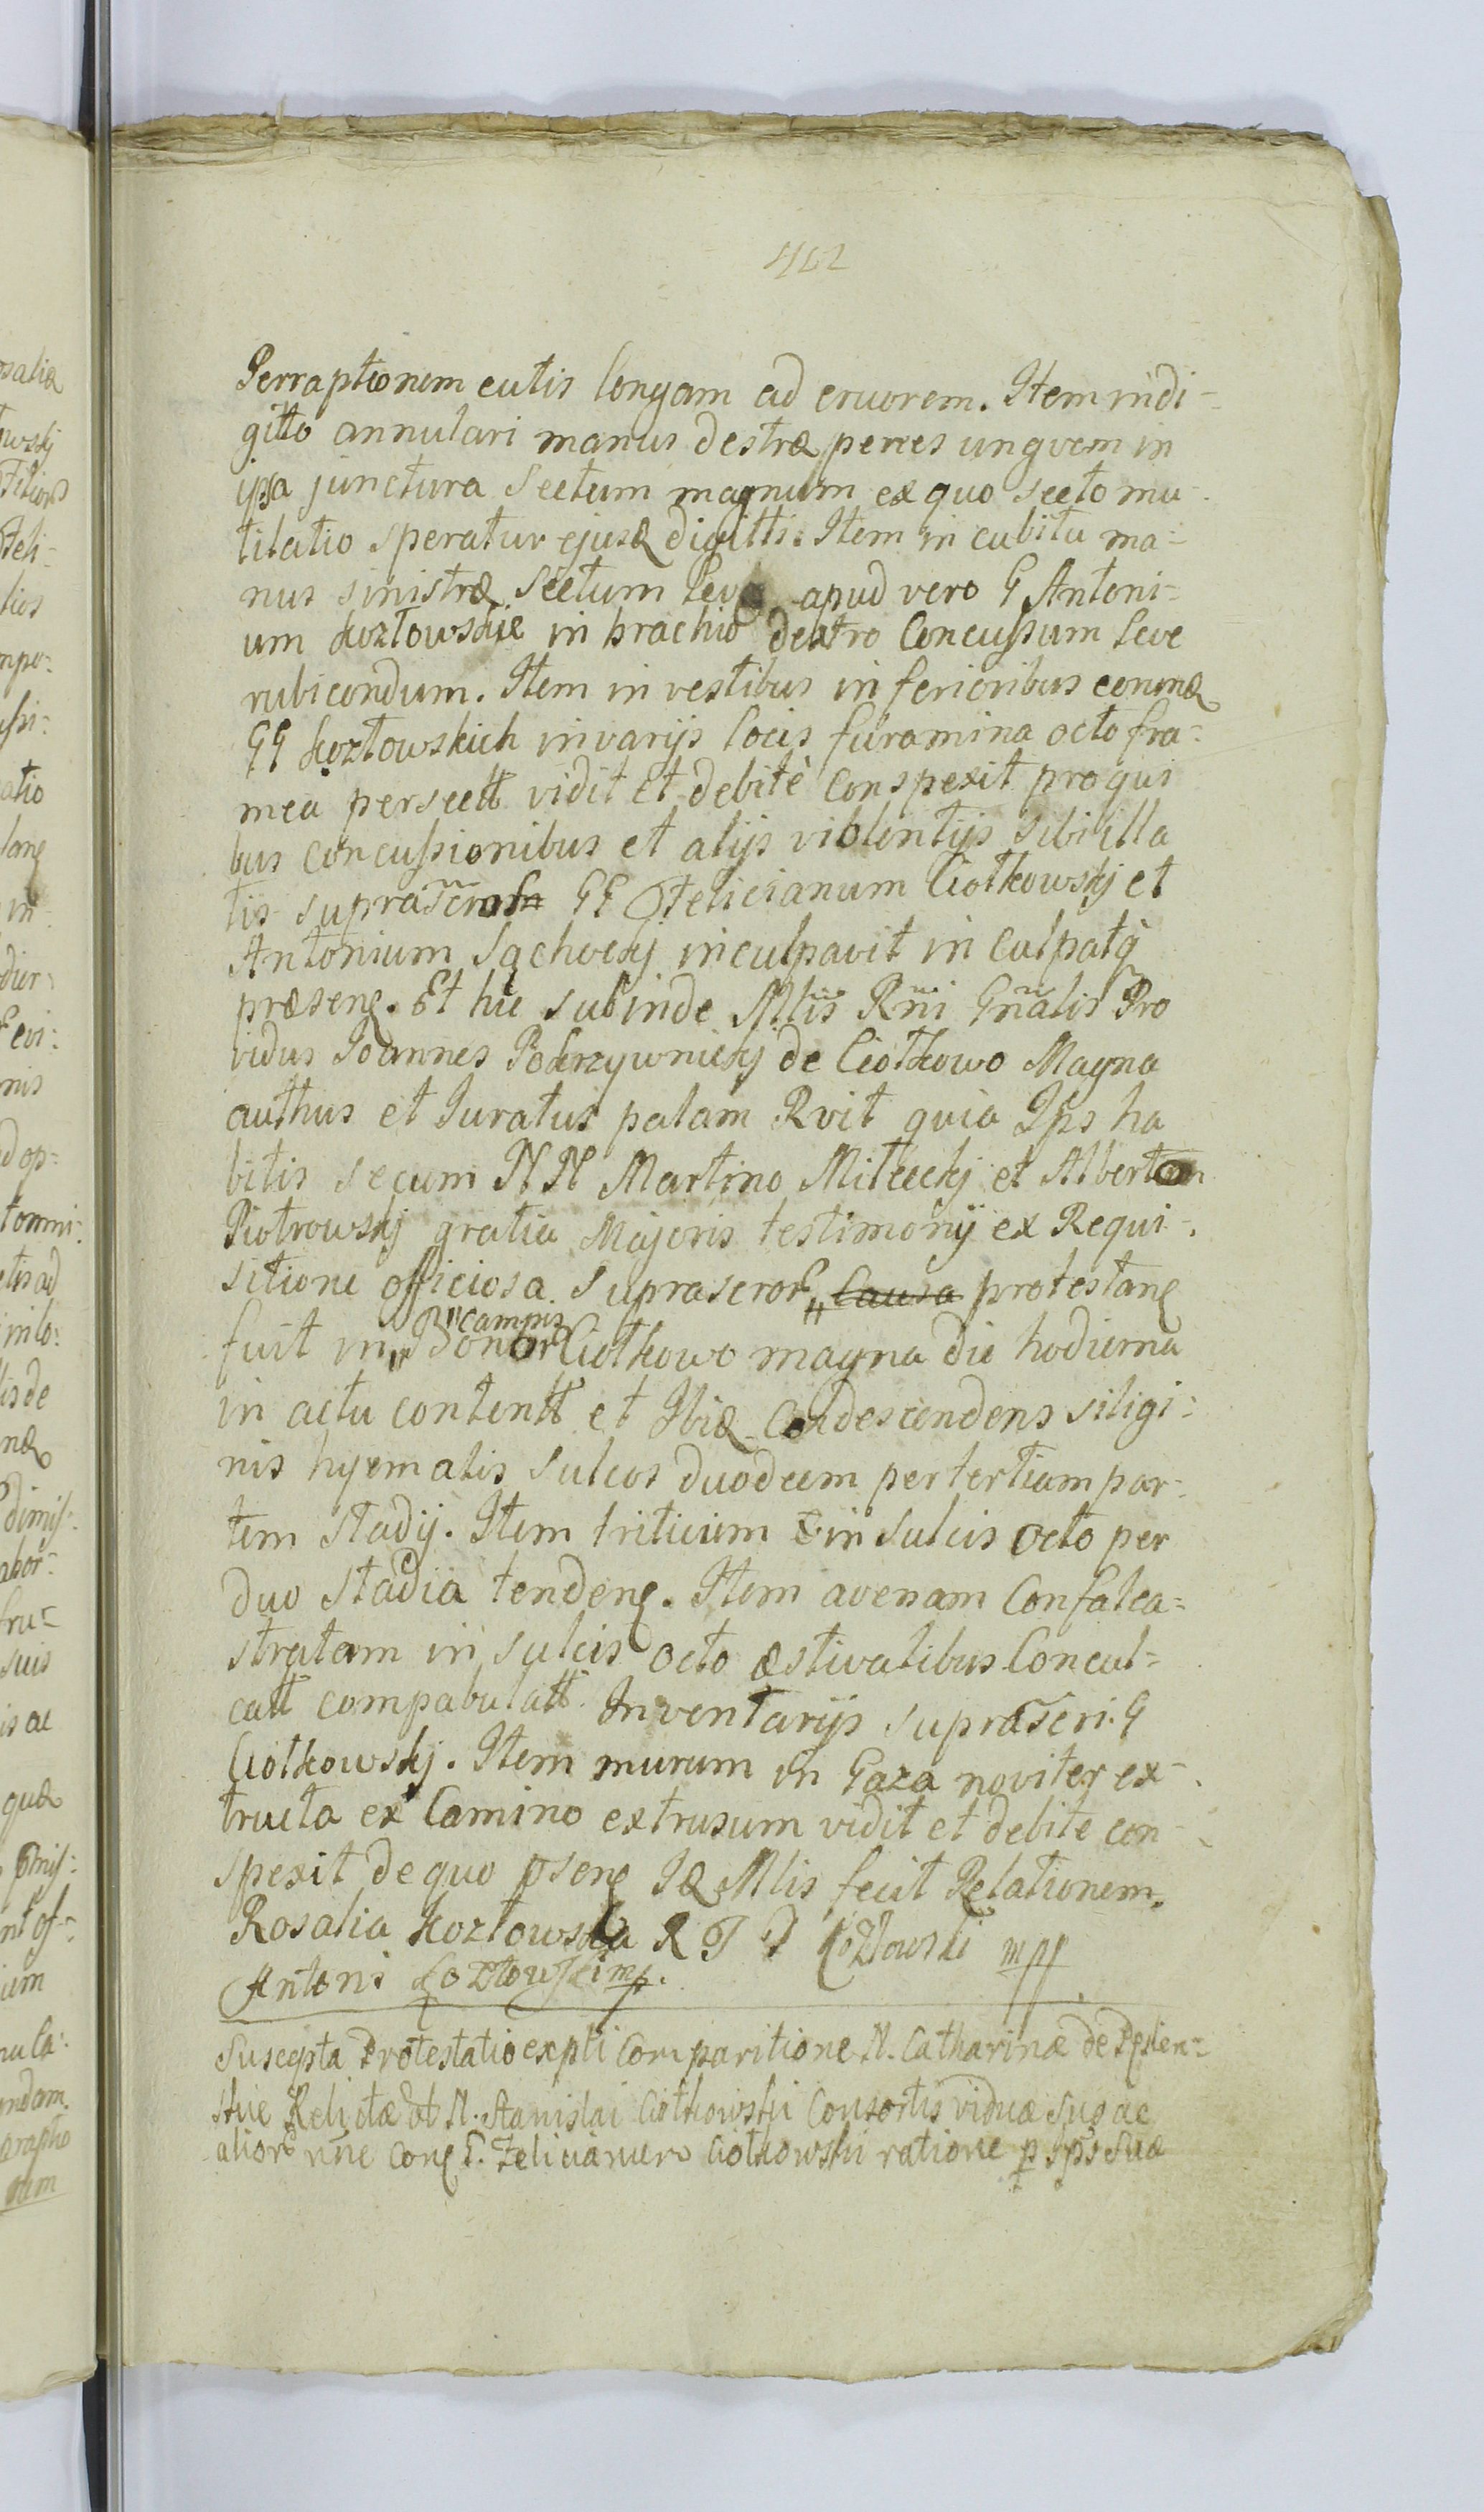 462
Perraptionem cutis longam ad cruorem. Item in di-
gitto annulari manus destræ penes ungvem in
ipsa junctura Sectum magnum ex quo secto mu-
tilatio speratur ejusq digitti. Item in cubitu ma-
nus sinistræ Sectum leve apud vero G Antoni-
um Kozłowskie in brachio dextro Concussum leve
rubicondum. Item in vestibus inferioribus eorumq
GG Kozłowskich in varijs locis furamina octo fra-
mea persectt vidit et debitè Conspexit pro qui
bus concussionibus et alijs violintijs sibi illa
tis suprascr GG Felicianum Ciołkowskj et
Antonium Sąchockj inculpavit in culpatq
præsenę. Et hic subinde Mlis Rni Gnalis Pro
vidus Joannes Pokrzywnickj de Ciołkowo Magna
authus et Juratus palam Rvit quia Ips ha
bitis secum NN Martino Miłeckj et Alberto
Piotrowskj gratia Majoris testimonij ex Requi-
sitione officiosa Suprascror Causa protestanę
fuit in campis Bonor Ciołkowo magna die hodierna
in actu contentt et Ibiq Condescendens siligi-
nis hyematis Sulcos duodecim per tertiam par-
tem stadij. Item triticum in Sulcis octo per
duo stadia tendenę. Item avenam Confalca-
stratam in sulcis octo æstivalibus Concul-
catt compabulatt Inventarijs suprascri. G
Ciołkowskj. Item murum in Gaza noviter ex-
tructa ex Camino extrusum vidit et debite con-
spexit de quo psenę Iq Mlis fecit Relationem.
Rosalia Kozłowska R J Kozłowski mpp
Antoni Kozłowski mp.
Suscepta Protestatio expti Comparitione N. Catharinæ de
Relictæ N. Stanislai Ciołkowski Consortis viduæ Suo ac
alior nne Conę G. Felicianum Ciołkowski ratione p spś Suæ